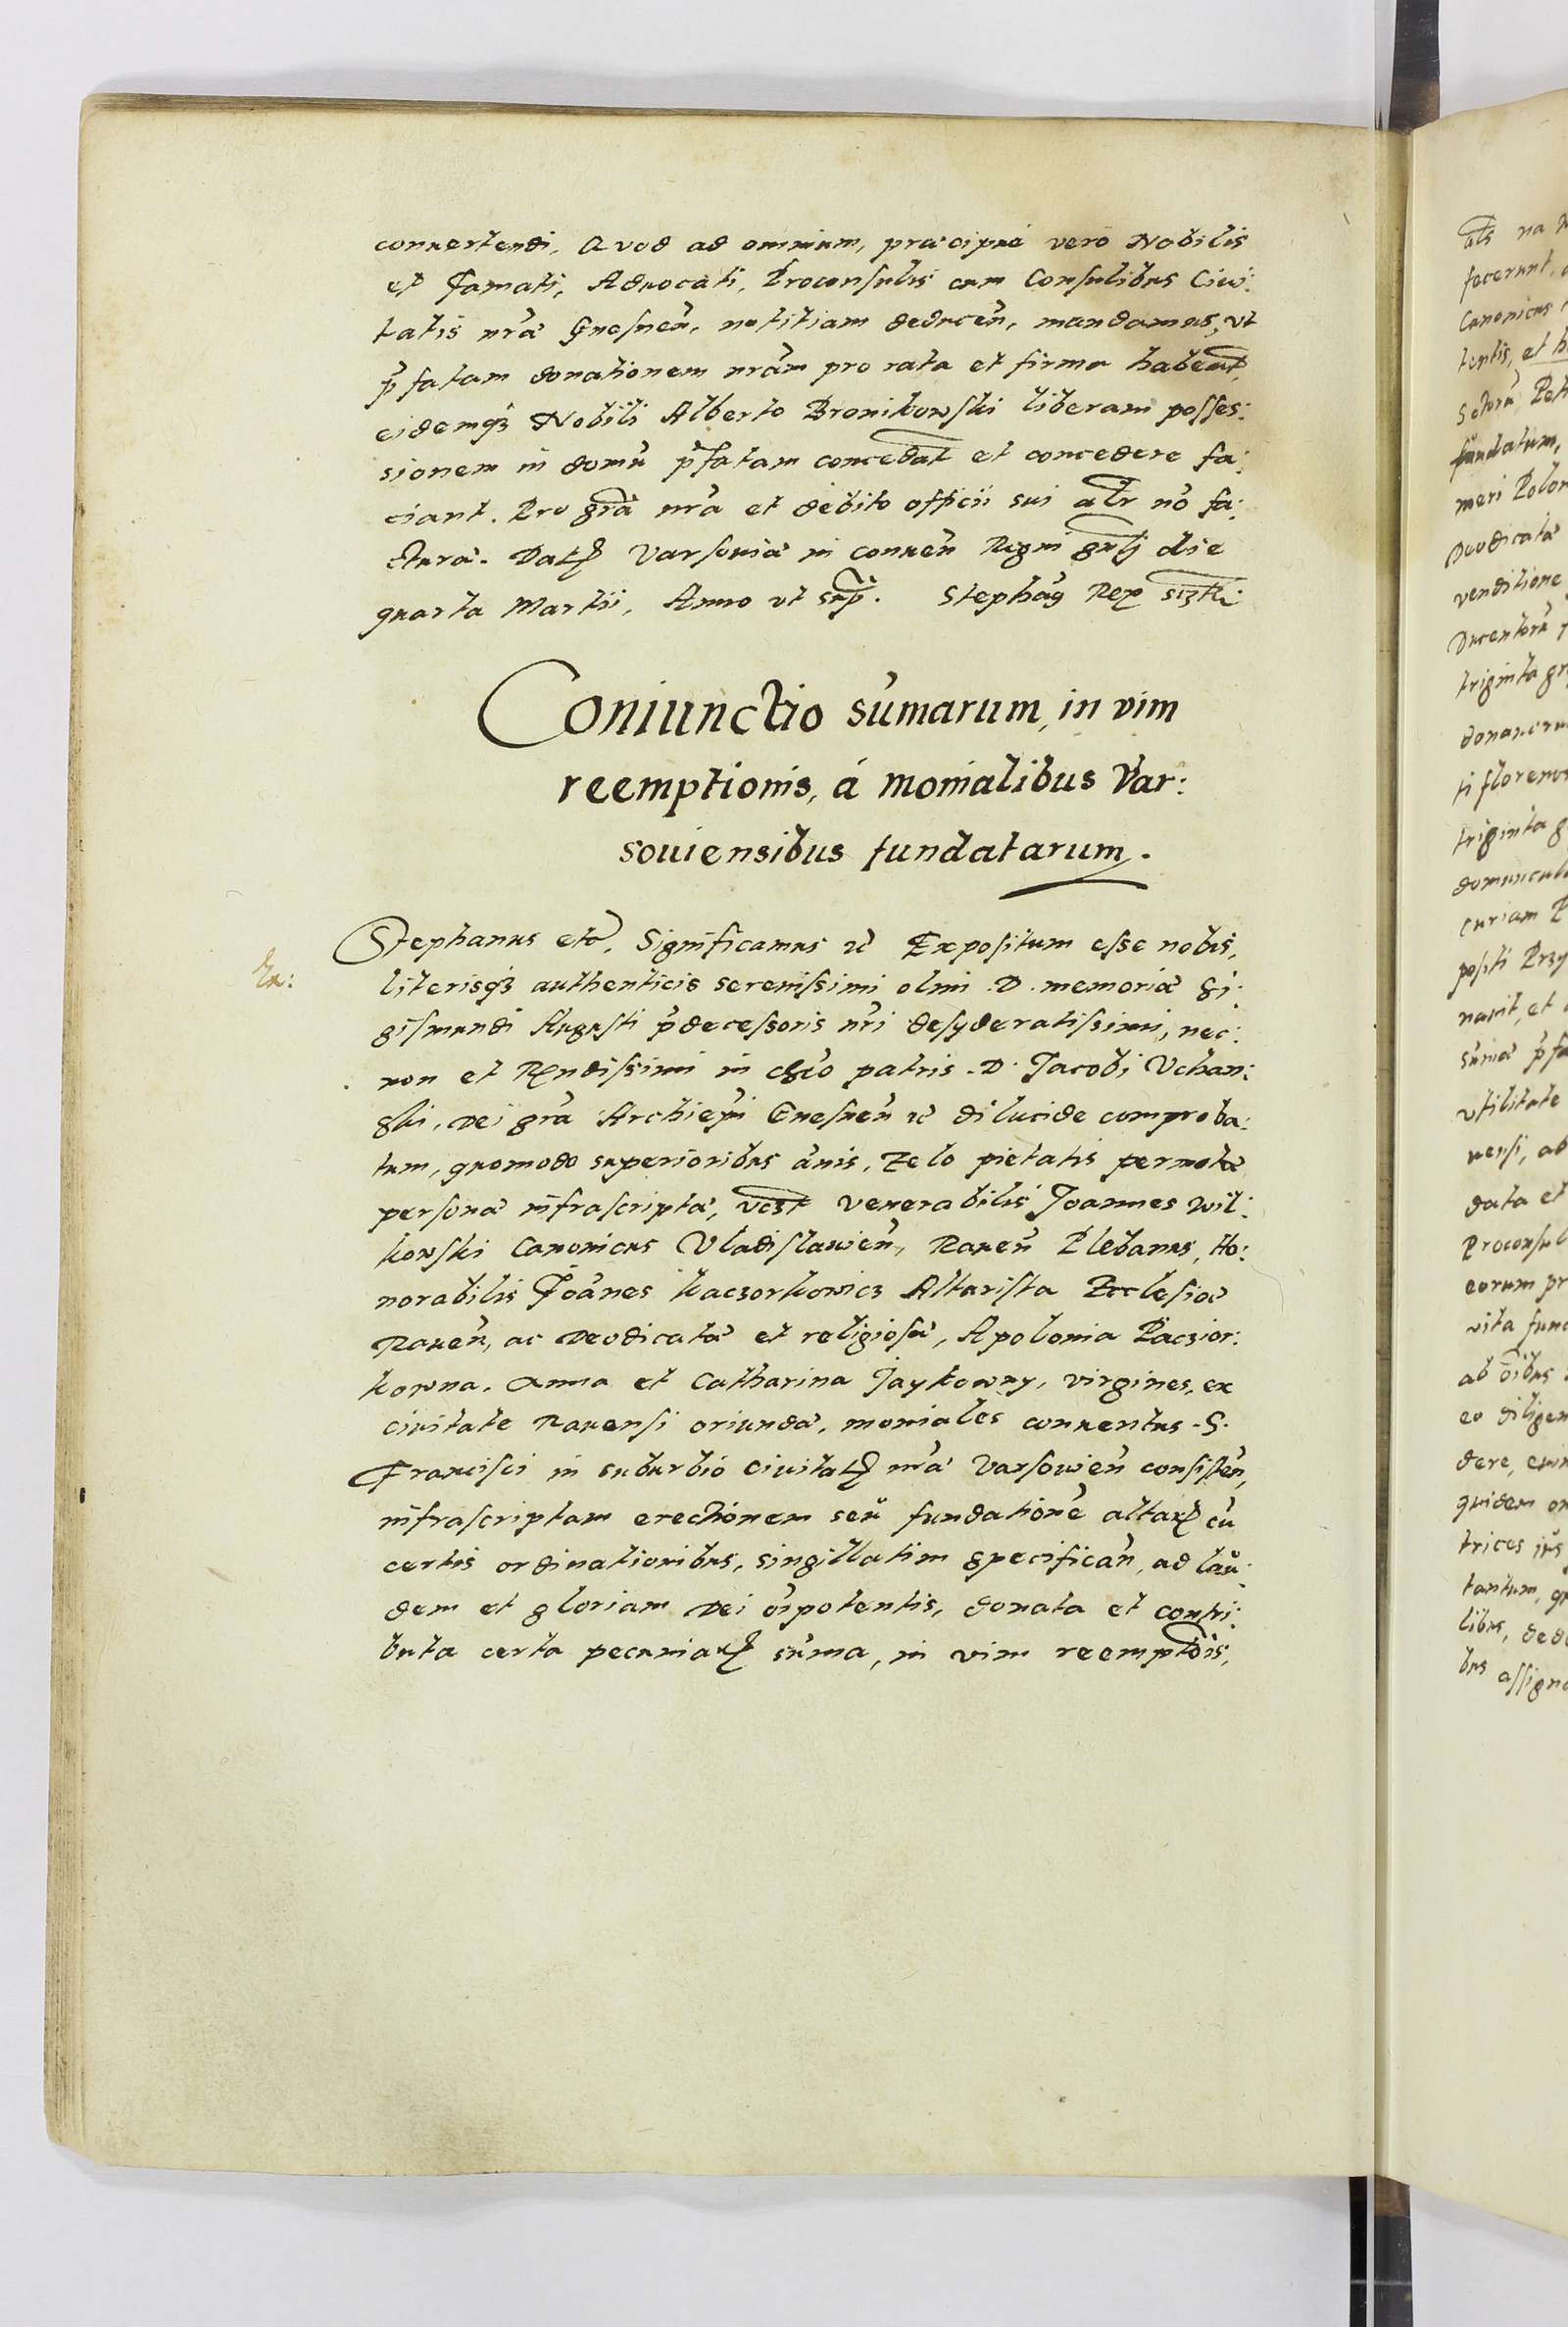 conuertendi. Quod ad omnium, præcipuè verò Nobilis
et Famati, Aduocati, Proconsulis cum Consulibus Ciui:
tatis nrã Gnesneñ, notitiam deduceñ, mandamus, vt
p̃fatam donationem nrãm pro rata et firma habeat,
eidemqȝ Nobili Alberto Bronikowski liberam posses:
sionem in domũ p̃fatam concedat et concedere fa:
ciant. Pro grã nrã et debito officii sui alr nõ fa:
cturæ. Datꝭ Varsouiæ in conueñ Regni gnlj die
quarta Martii, Anno vt sup̃. Stephãꝯ Rex
Coniunctio sũmarum, in vim
reemptionis, á monialibus Var:
souiensibus fundatarum.
Stephanus etc̃. Significamus ꝛc̃ Expositum esse nobis,
literisqȝ authenticis serenissimi olim .D. memoriæ Si:
gismundi Augusti p̃decessoris nr̃i desyderatissimi, nec:
non et Rendissimi in chr̃o patris .D. Jacobi Vchan:
ski, Dei grã Archiep̃i Gnesneñ ꝛc̃ dilucide comproba:
tum, quomodo superioribus ãnis, zelo pietatis permotæ
personæ infrascriptæ, vcȝt venerabilis Joannes Wil:
kowski Canonicus Vladislauieñ, Raueñ Plebanus, Ho:
norabilis Joãnes Kaczorkowicz Altarista Ecclesiæ
Raueñ, ac Deodicatæ et religiosæ, Apolonia Paczior:
kowna, Anna et Catharina Jaykowny, virgines, ex
ciuitate Rauensi oriundæ, moniales conuentus .S.
Francisci in suburbio ciuitatꝭ nrã Varsouieñ consisteñ,
infrascriptam erectionem seũ fundationẽ altarꝭ cũ
certis ordinationibus, singillatim specificañ, ad lau:
dem et gloriam Dei oĩpotentis, donata et contri:
buta certa pecuniarꝭ sũma, in vim reemptõis,